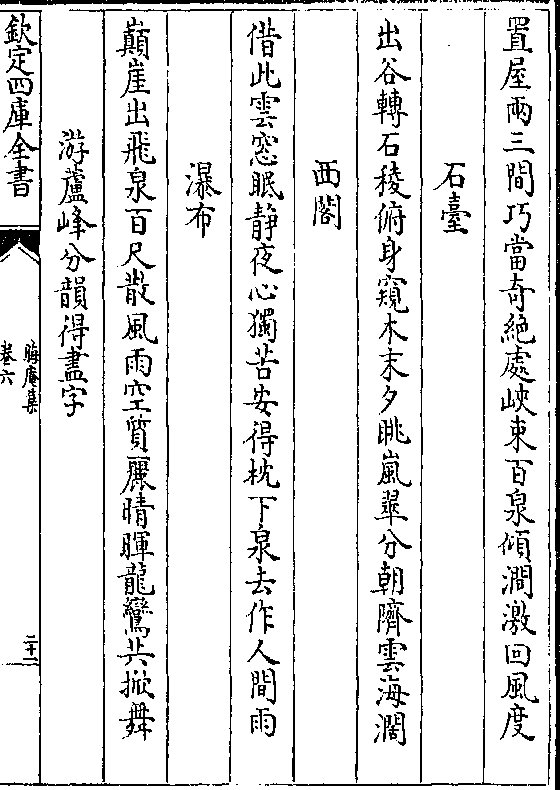 置屋兩三間巧當奇絶處峽束百泉傾澗激回風度
石臺
出谷轉石稜俯身窺木末夕眺嵐翠分朝隮雲海濶
西閣
借此雲窓眠靜夜心獨苦安得枕下泉去作人間雨
瀑布
巔崖出飛泉百尺散風雨空質麗晴暉龍鸞共掀舞
游蘆峰分韻得盡字
欽定四庫全書
晦庵集
卷六
二十二